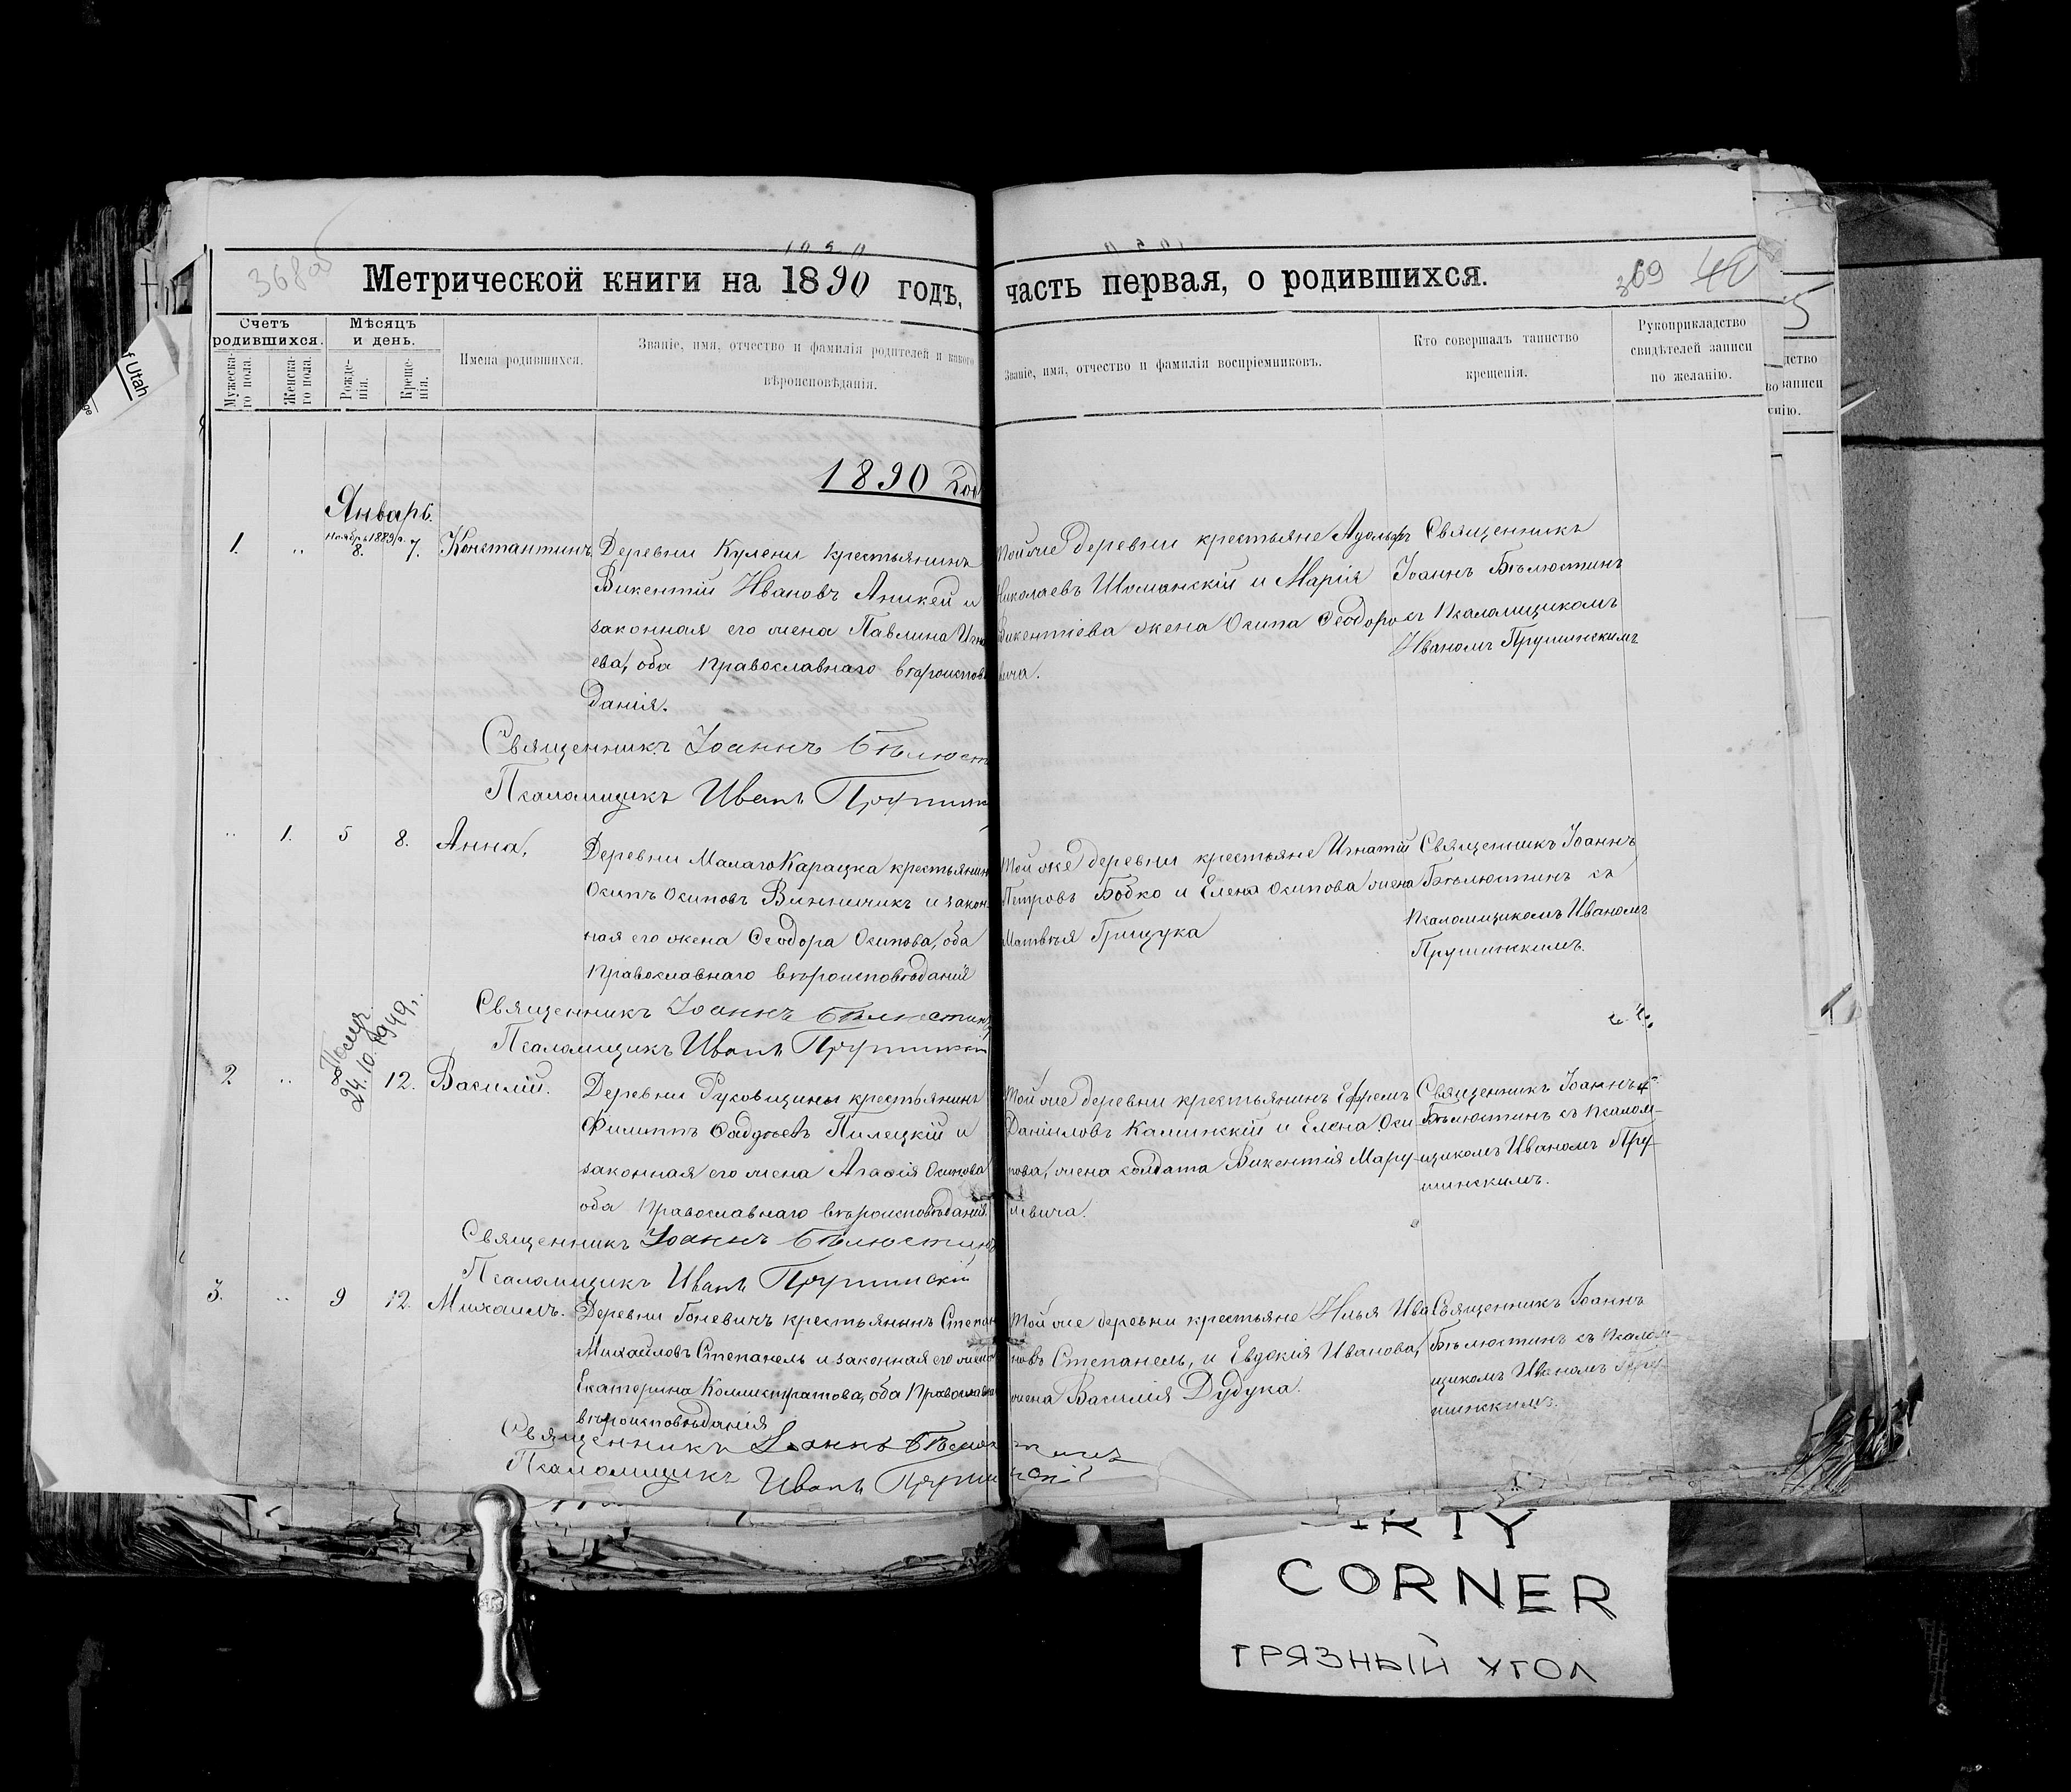 368об
Метрической книги на 1890 годъ, часть первая, о родившихся.
369 40
Счетъ родившихся.
Мужеска-го пола.
Женска-го пола.
Мѣсяцъ и день.
Рожде-нія.
Креще-нія.
Имена родившихся.
Званіе, имя, отчество и фамилія родителей и какого
вѣроисповѣданія.
Званіе, имя, отчество и фамилія воспріемниковъ.
Кто совершалъ таинство
крещенія.
Рукоприкладство
свидѣтелей записи
по желанію.
1890 Год
Январь.
1. ,, Ноябрь 1889 г. 8. 7. Константинъ
Деревни Кулени крестьянинъ
Викентій Ивановъ Аникей и
законная его жена Павлина Игна
ева, оба православнаго вѣроиспов
данія.
Той же деревни крестьяне Адольфъ
Николаевъ Шоманскій и Марія
Викентіева жена Осипа Ѳеодоро
вича.
Священникъ
Іоаннъ Бѣлюстинъ
съ Псаломщикомъ
Иваномъ Прушинскимъ
Священникъ Іоаннъ Бѣлюст
Псаломщикъ Иванъ Прушин
,, 1. 5 8. Анна,
Деревни Малаго Карацка крестьянин
Осипъ Осиповъ Винничикъ и закон
ная его жена Ѳеодора Осипова, оба
православнаго вѣроисповѣданій
Той же деревни крестьяне Игнатій
Петровъ Бобко и Елена Осипова жена
Матвѣя Грицука
Священникъ Іоаннъ
Бѣлюстинъ съ
Псаломщикомъ Иваномъ
Прушинскимъ.
Священникъ Іоаннъ Бѣлюстинъ
Псаломщикъ Иванъ Прушинскій
24.10.1949 г.
2 ,, 12. Василій.
Деревни Руковщины крестьянинъ
Филиппъ Ѳаддѣевъ Пилецкій и
законная его жена Агаѳія Осипова
оба православнаго вѣроисповѣданій
Той же деревни крестьянинъ Ефремъ
Даніиловъ Калинскій и Елена Оси
пова, жена солдата Викентія Мару
шевича.
Священникъ Іоаннъ
Бѣлюстинъ съ Псалом-
щикомъ Иваномъ Пру-
шинскимъ.
Священникъ Іоаннъ Бѣлюстинъ
Псаломщикъ Иванъ Прушинскій
3. ,, 9 12. Михаилъ.
Деревни Гоневичъ крестьянинъ Степан
Михайловъ Степанель и законная его жена
Екатерина Каллистратова, оба православна
вѣроисповѣданія
Той же деревни крестьяне Илья Ива
новъ Степанель, и Евдокія Иванова,
жена Василія Дудука.
Священникъ Іоаннъ
Бѣлюстинъ съ Псалом-
щикомъ Иваномъ Пру-
шинскимъ.
Священникъ Іоаннъ Бѣлюстинъ
Псаломщикъ Иванъ Прушинскій
f Utah
CORNER
ГРЯЗНЫЙ УГОЛ